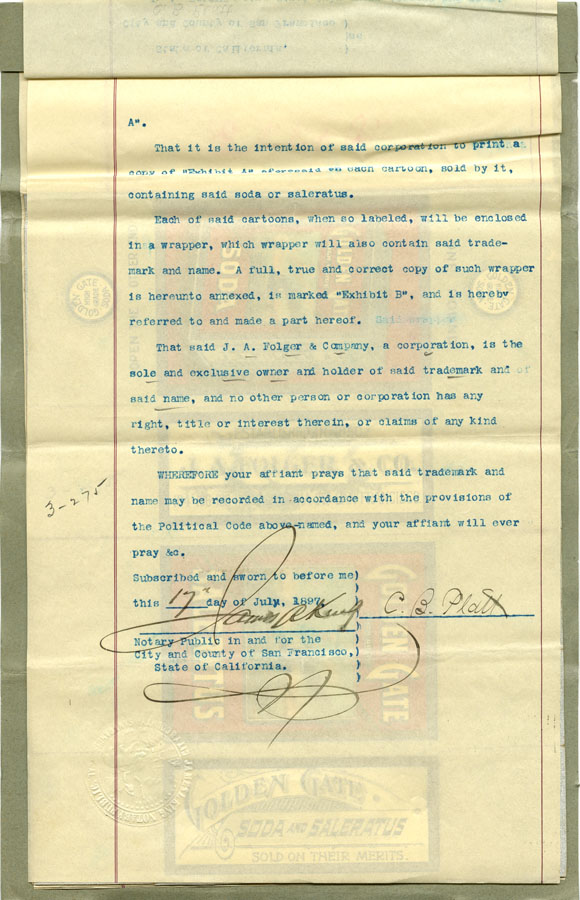 A".
That it is the intention of said corporation to print a
copy of "Exhibit A" aforesaid on each cartoon, sold by it,
containing said soda or saleratus.
Each of said cartoons, when so labeled, will be enclosed
in a wrapper, which wrapper will also contain said trade-
mark and name. A full, true and correct copy of such wrapper
is hereunto annexed, is marked "Exhibit B", and is hereby
referred to and made a part hereof.
That said J. A. Folger & Company, a corporation, is the
sole and exclusive owner and holder of said trademark and of
said name, and no other person or corporation has any
right, title or interest therein, or claims of any kind
thereto.
WHEREFORE your affiant prays that said trademark and
name may be recorded in accordance with the provisions of
the Political Code above-named, and your affiant will ever
pray &c.
3-275
Subscribed and sworn to before me)
this 17th day of July, 1897.
C. B. Platt
Notary Public in and for the
City and County of San Francisco,
State of California.
GOLDEN GATE
GOLDEN GATE
SODA AND SALERATUS
SOLD ON THEIR MERITS.